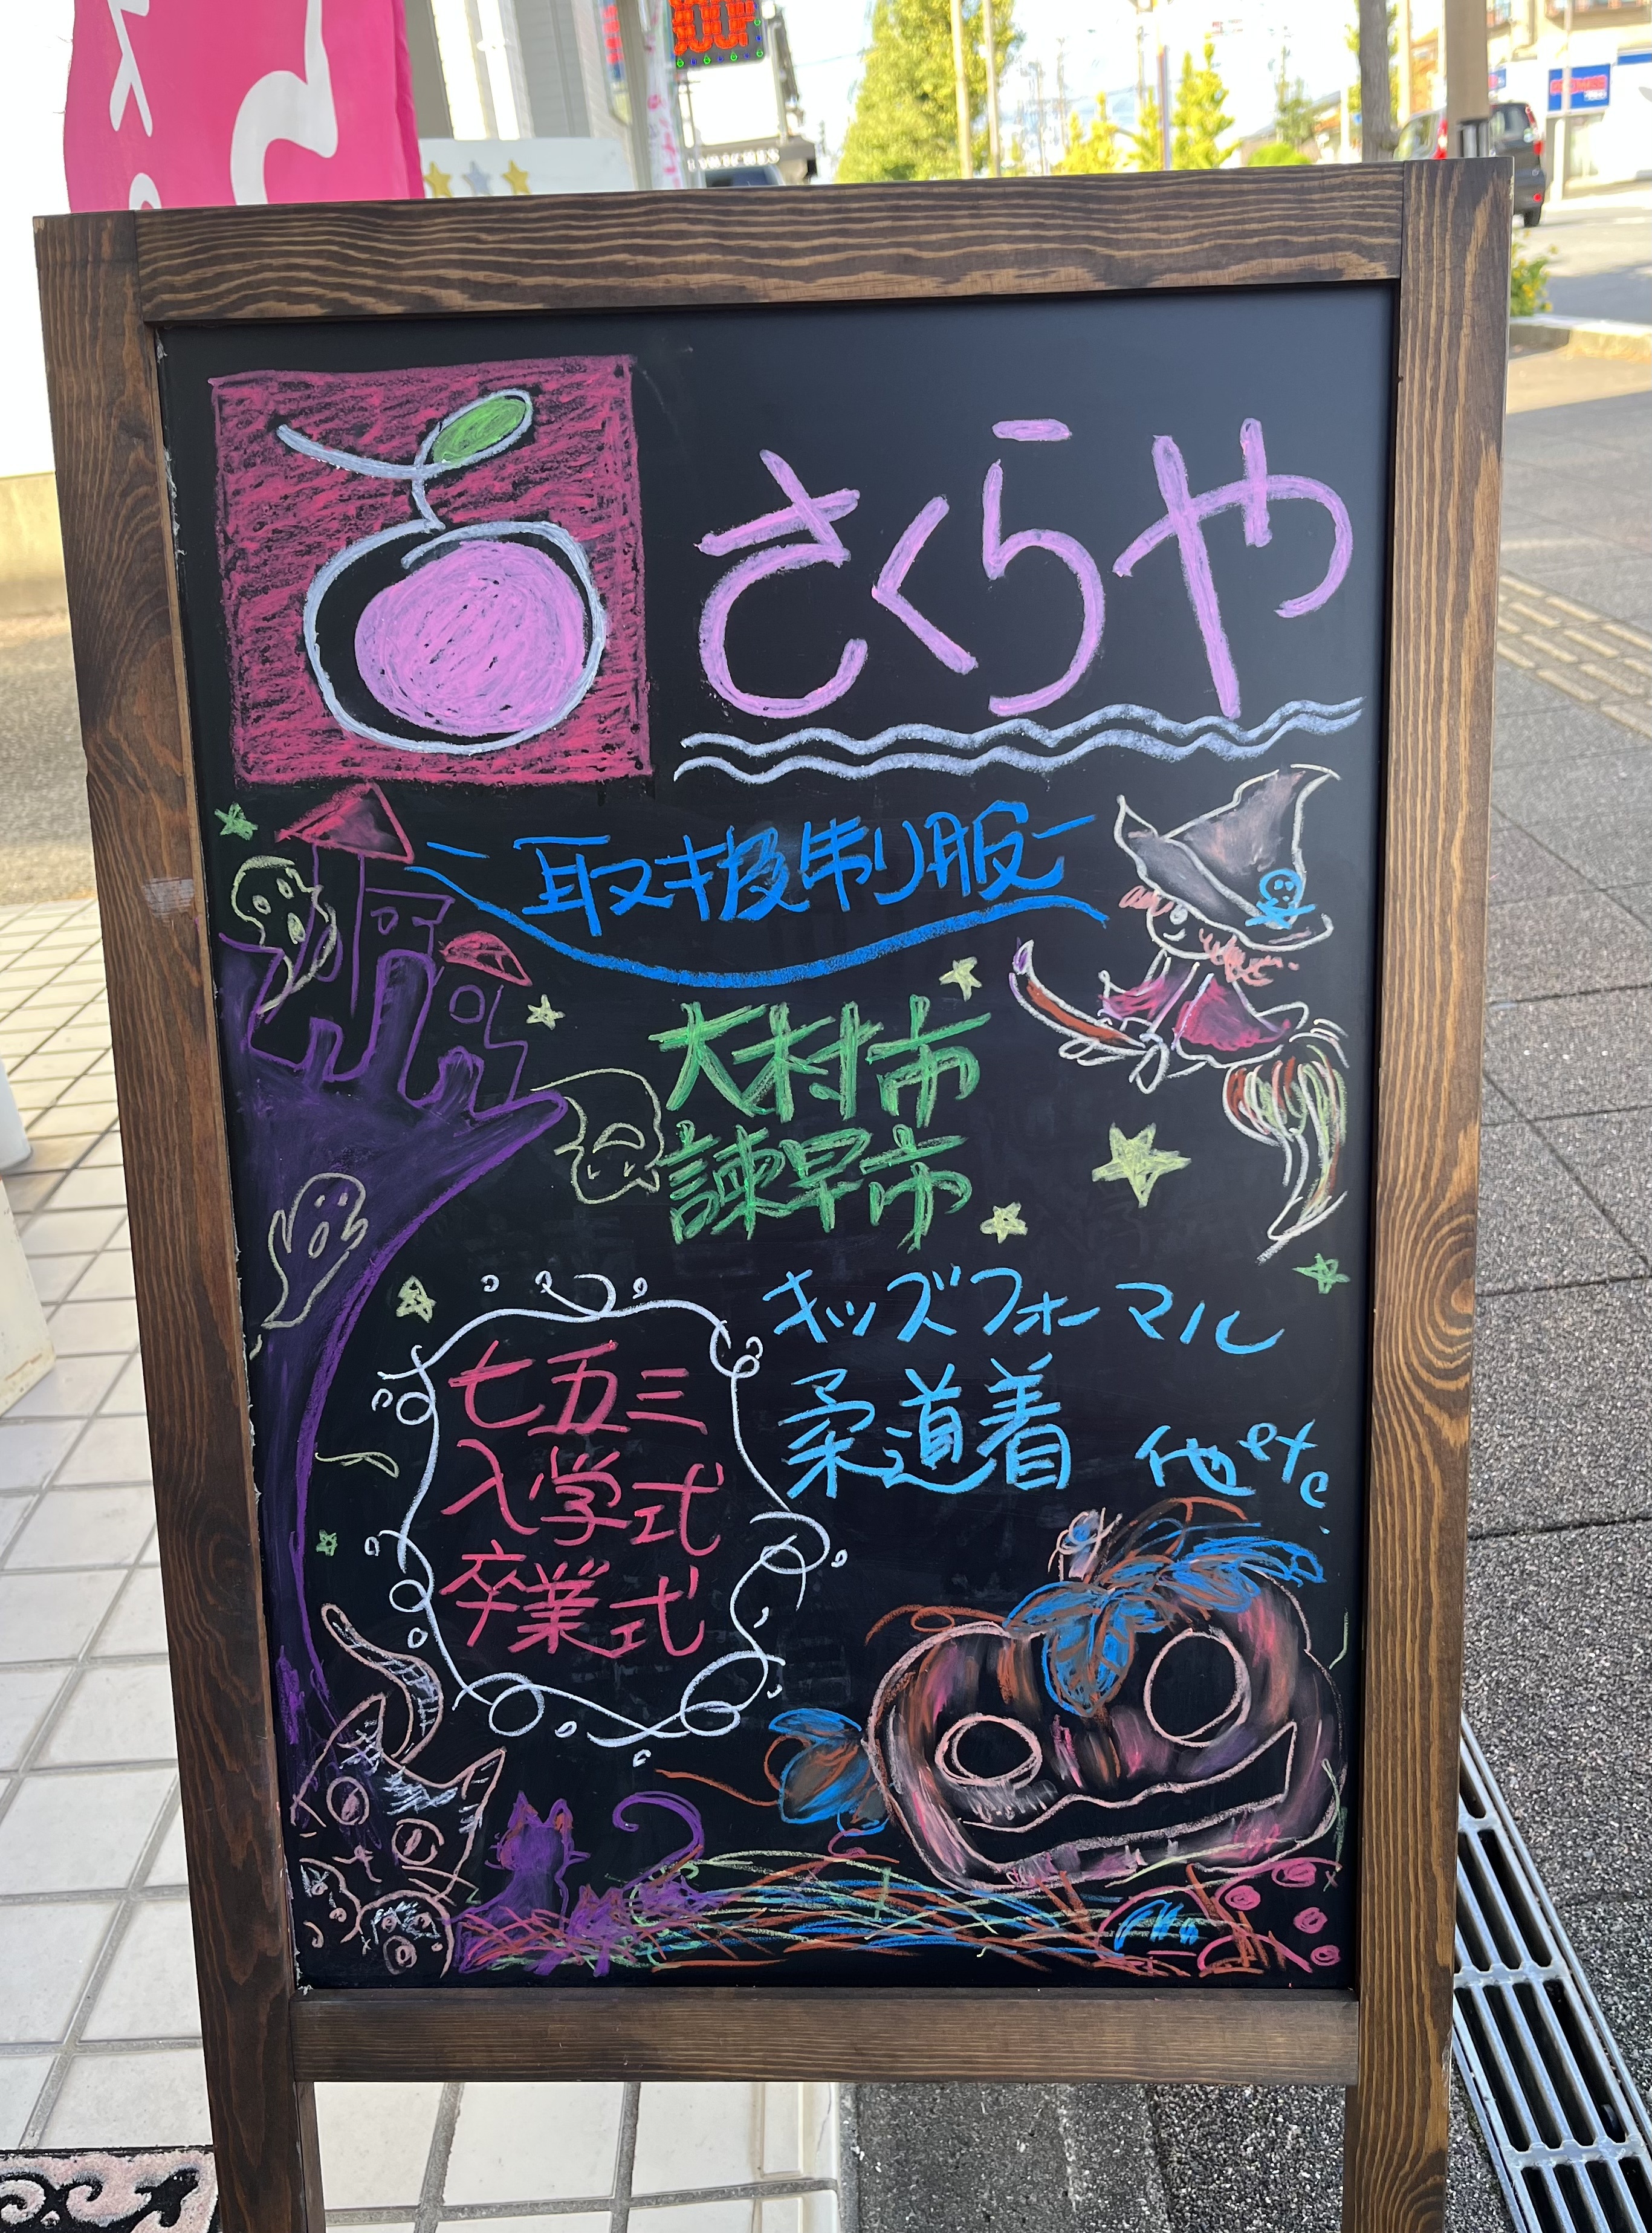 さくらや
取扱制服
大村市
諫早市
キッズフォーマル
柔道着 他etc
七五三
入学式
卒業式